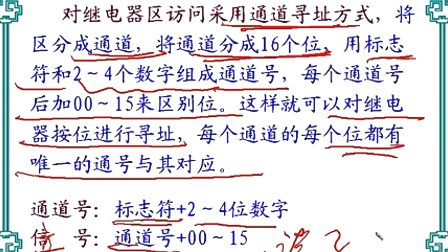 对继电器区访问采用通道寻址方式，将
区分成通道，将通道分成16个位，用标志
符和2～4个数字组成通道号，每个通道号
后加00～15来区别位。这样就可以对继电
器按位进行寻址，每个通道的每个位都有
唯一的通号与其对应。
通道号：标志符+2～4位数字
号：通道号+00～15